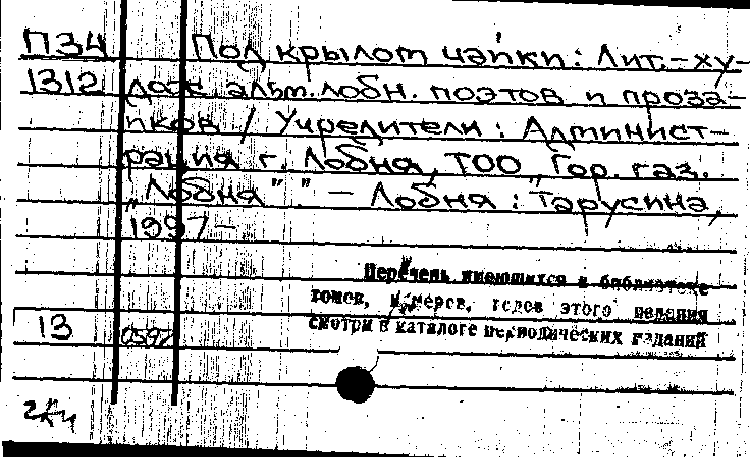 П34 Под крылом чайки: Лит.-ху-
1312 дож. альм. лобн. поэтов и проза-
иков / Учредители: Админист-
рация г. Лобня, ТОО „Гор. газ.
„Лобня" ". – Лобня: Тарусина,
1997–
Перечень имеющихся в библиотеке
томов, номеров, годов этого издания
смотри в каталоге периодических изданий
13 0597